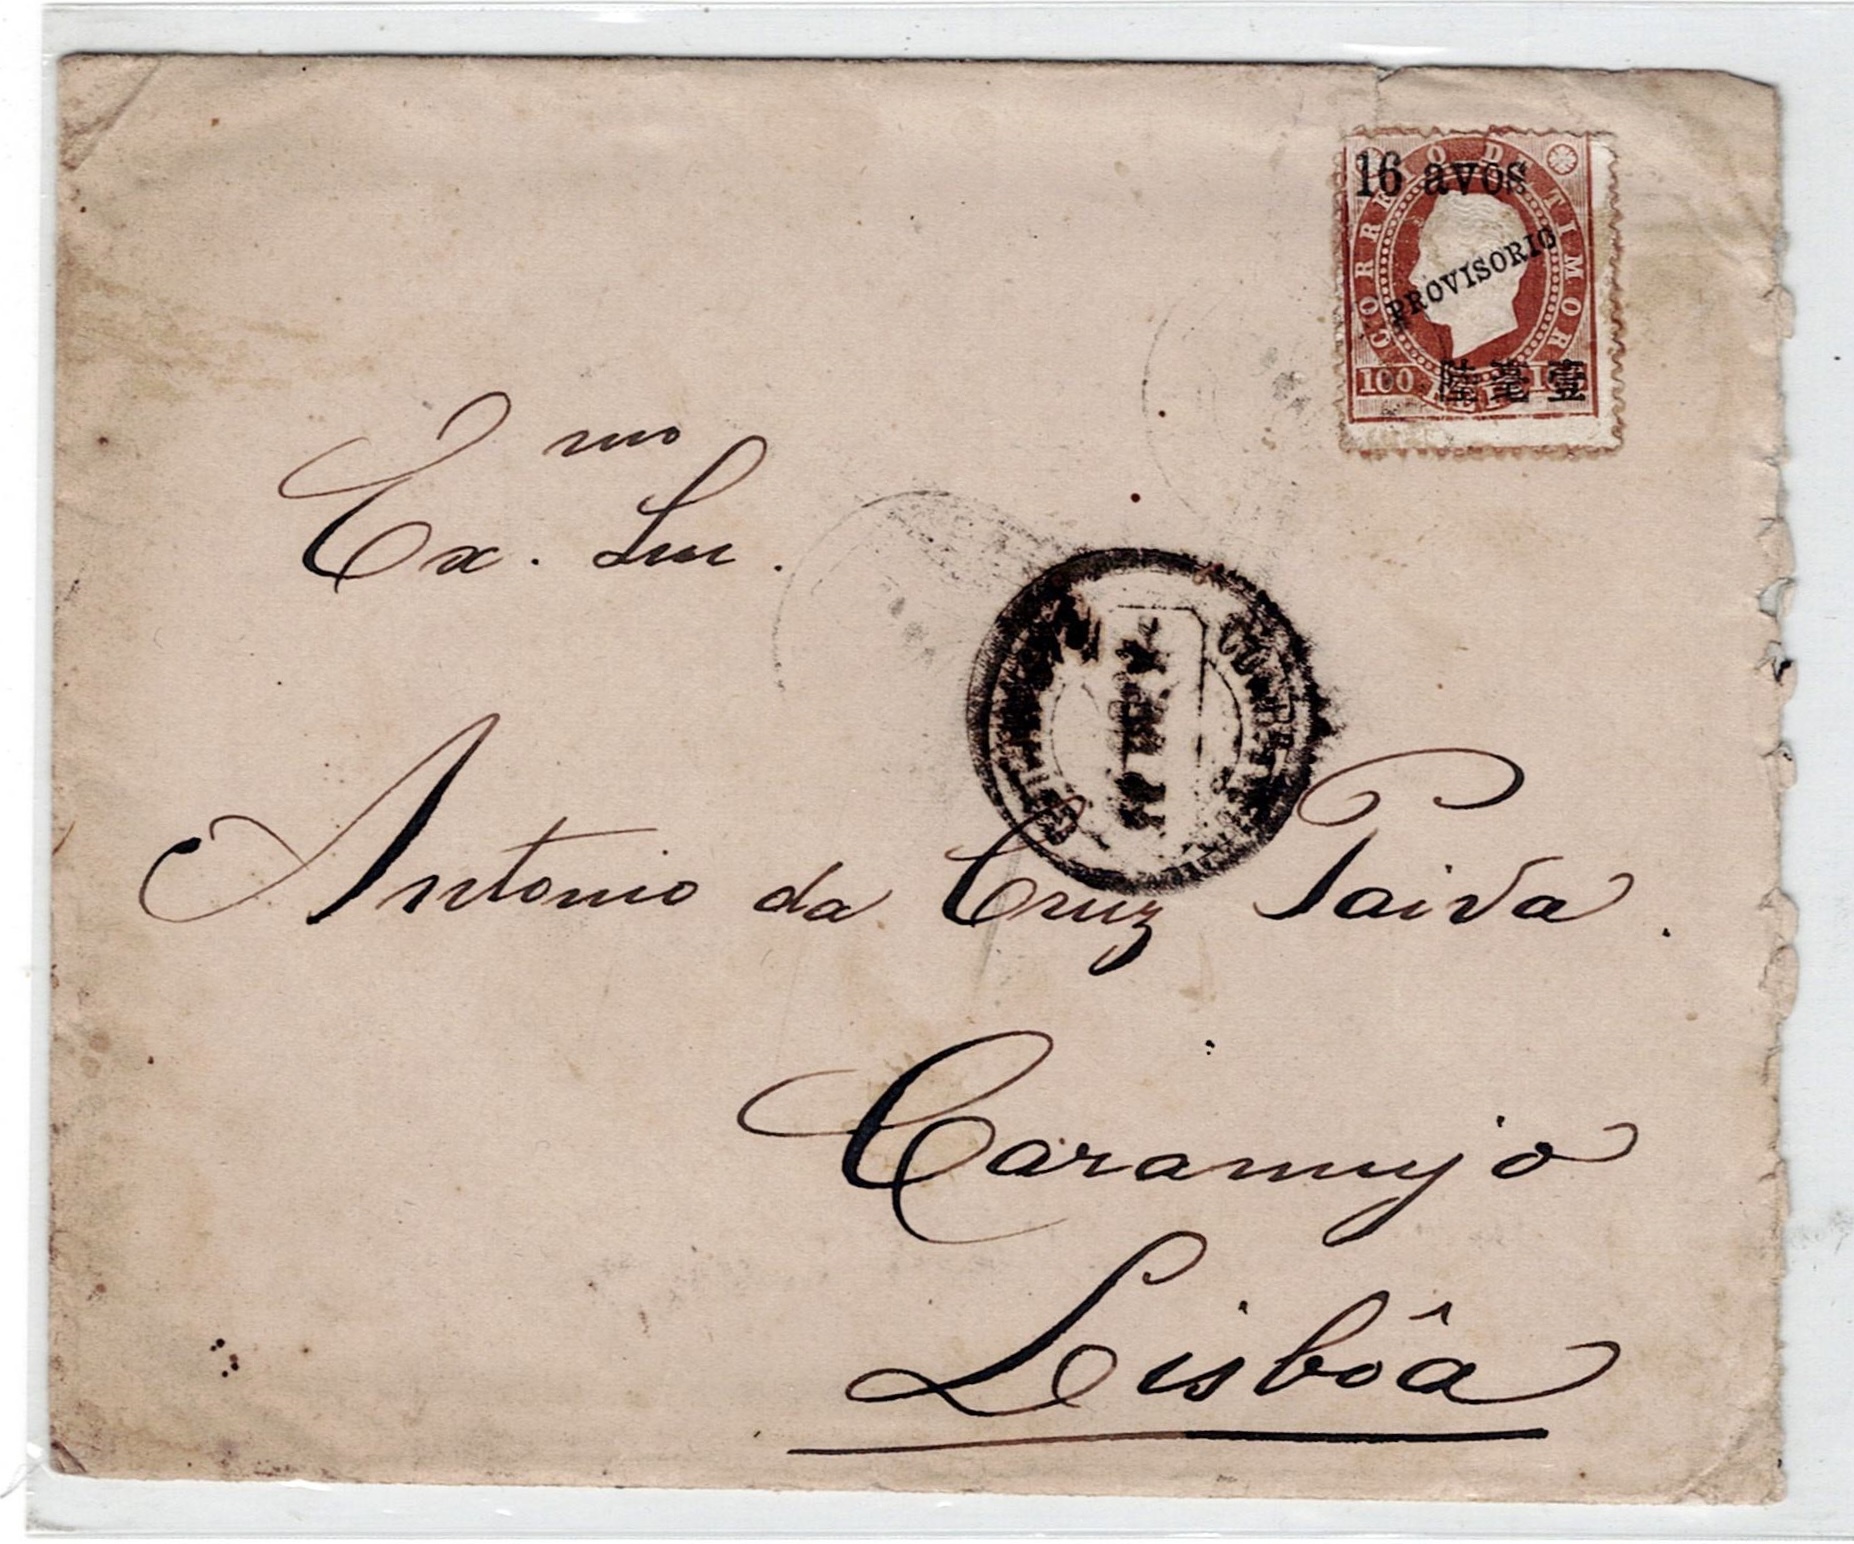 16 avos
CORREIO DE TIMOR
PROVISORIO
100
壹毫陸
Ex.mo Snr.
Antonio da Cruz Paiva.
Caramujo
Lisbôa